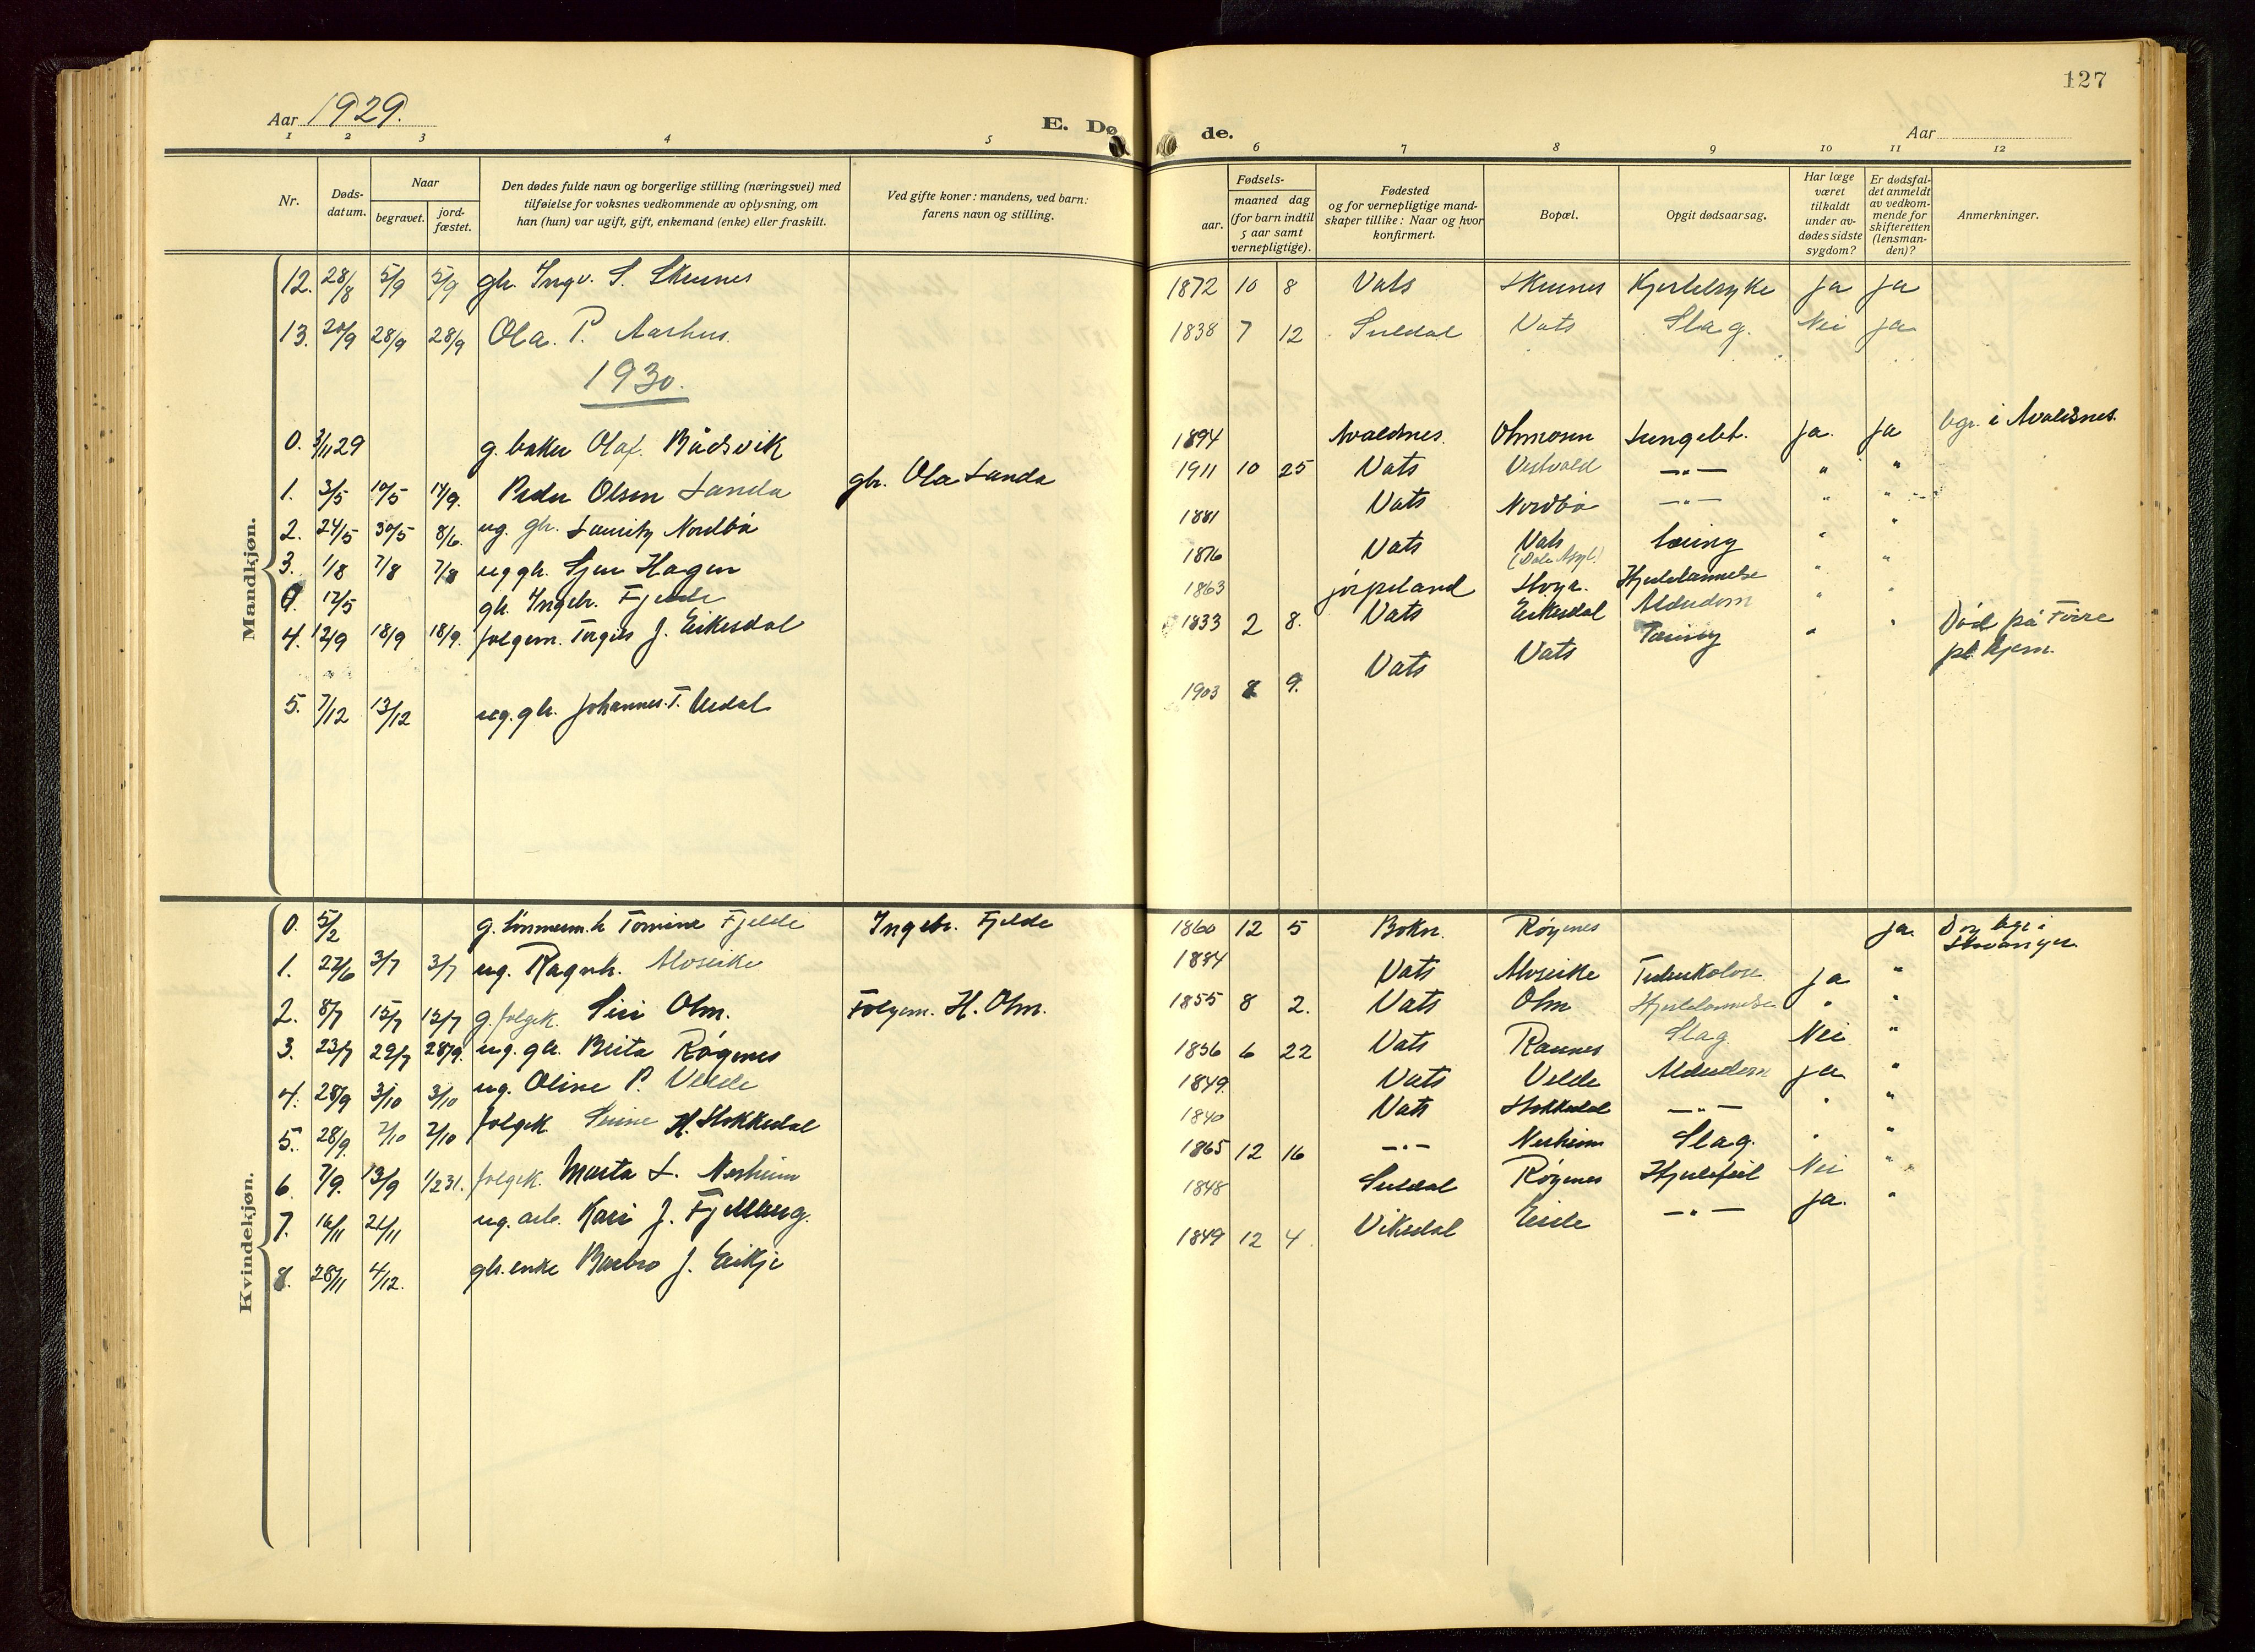 127
Aar 1929.
E. Dø
de.
Aar
1 2 3 4 5 6 7 8 9 10 11 12
Nr. Døds-datum. Naar begravet. jord-fæstet. Den dødes fulde navn og borgerlige stilling (næringsvei) med tilføielse for voksnes vedkommende av oplysning, om han (hun) var ugift, gift, enkemand (enke) eller fraskilt. Ved gifte koner: mandens, ved barn: farens navn og stilling. Fødsels- aar. maaned dag (for barn indtil 5 aar samt vernepligtige). Fødested og for vernepligtige mand-skaper tillike: Naar og hvor konfirmert. Bopæl. Opgit dødsaarsag. Har læge været tilkaldt under av-dødes sidste sygdom? Er dødsfal-det anmeldt av vedkom-mende for skifteretten (lensman-den)? Anmerkninger.
Mandkjøn.
12. 28/8 5/9 5/9 gbr. Ingv. S. Skeunes 1872 10 8 Vats Skeunes Kjertelsyke ja ja
13. 20/9 28/9 28/9 Ola. P. Aarhus. 1838 7 12 Suldal Vats Slag. Nei ja
1930.
0. 3/11 29 g. baker Olaf. Bådsvik 1894 Avaldsnes. Ohmosen Lungebet. ja. ja bgr. i Avaldsnes.
1. 3/5 10/5 14/9. Peder Olsen Landa gbr. Ola Landa 1911 10 25 Vats Vestvold —"— " "
2. 24/5 30/5 8/6. ug. gbr. Lauritz Nordbø 1881 Vats Nordbø —"— " "
3. 1/8 7/8 7/8 ug gbr. Sjur Hagen 1876 Vats Vats (Dale Asyl.) Tæring " "
0. 12/5 gbr. Ingebr. Fjelde 1863 jørpeland Stvgr. Hjertelammelse " "
4. 12/9 18/9 18/9. folgem. Torgils J. Eikesdal 1833 2 8. Vats Eikesdal Alderdom " "
5. 7/12 13/12 ug. gbr. Johannes. T. Vesdal 1903 8 9. Vats Vats Tæring " " Död på Förre pl. hjem.
Kvindekjøn.
0. 5/2 g. tömmerm.k Tomine Fjelde Ingebr. Fjelde 1860 12 5 Bokn. Røgenes ja. Dog bgr. i Stavanger.
1. 27/6 3/7 3/7 ug. Ragnh. Alvseike 1884 Vats Alvseike Tuberkolose ja "
2. 8/7 15/7 15/7 g. folgek. Siri Ohm. Folgem. H. Ohm. 1855 8 2. Vats Ohm Hjertelammelse " "
3. 23/7 29/7 28/9. ug. gbr. Brita Røgenes 1856 6 22 Vats Raunes Slag Nei "
4. 28/9 3/10 3/10 ug. Oline P. Velde 1849. Vats Velde Alderdom ja "
5. 28/9 7/10 7/10 folgek. H. Stokkedal 1840 Vats Stokkedal —"— " "
6. 7/9. 13/9 1/2 31. folgek. Marta L. Nerheim 1865 12 16 —"— Nerheim Slag. " "
7. 16/11 21/11 ug. arb. Kari J. Fjellberg. 1848 Suldal Røgenes Hjertefeil Nei "
8. 28/11 4/12. gbr. enke Barbro J. Eikje 1849 12 4. Vikedal —"— ja. "